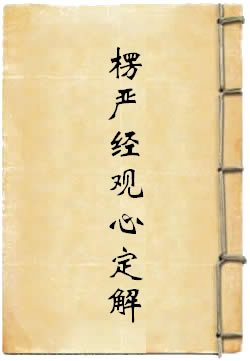 楞严经观心定解